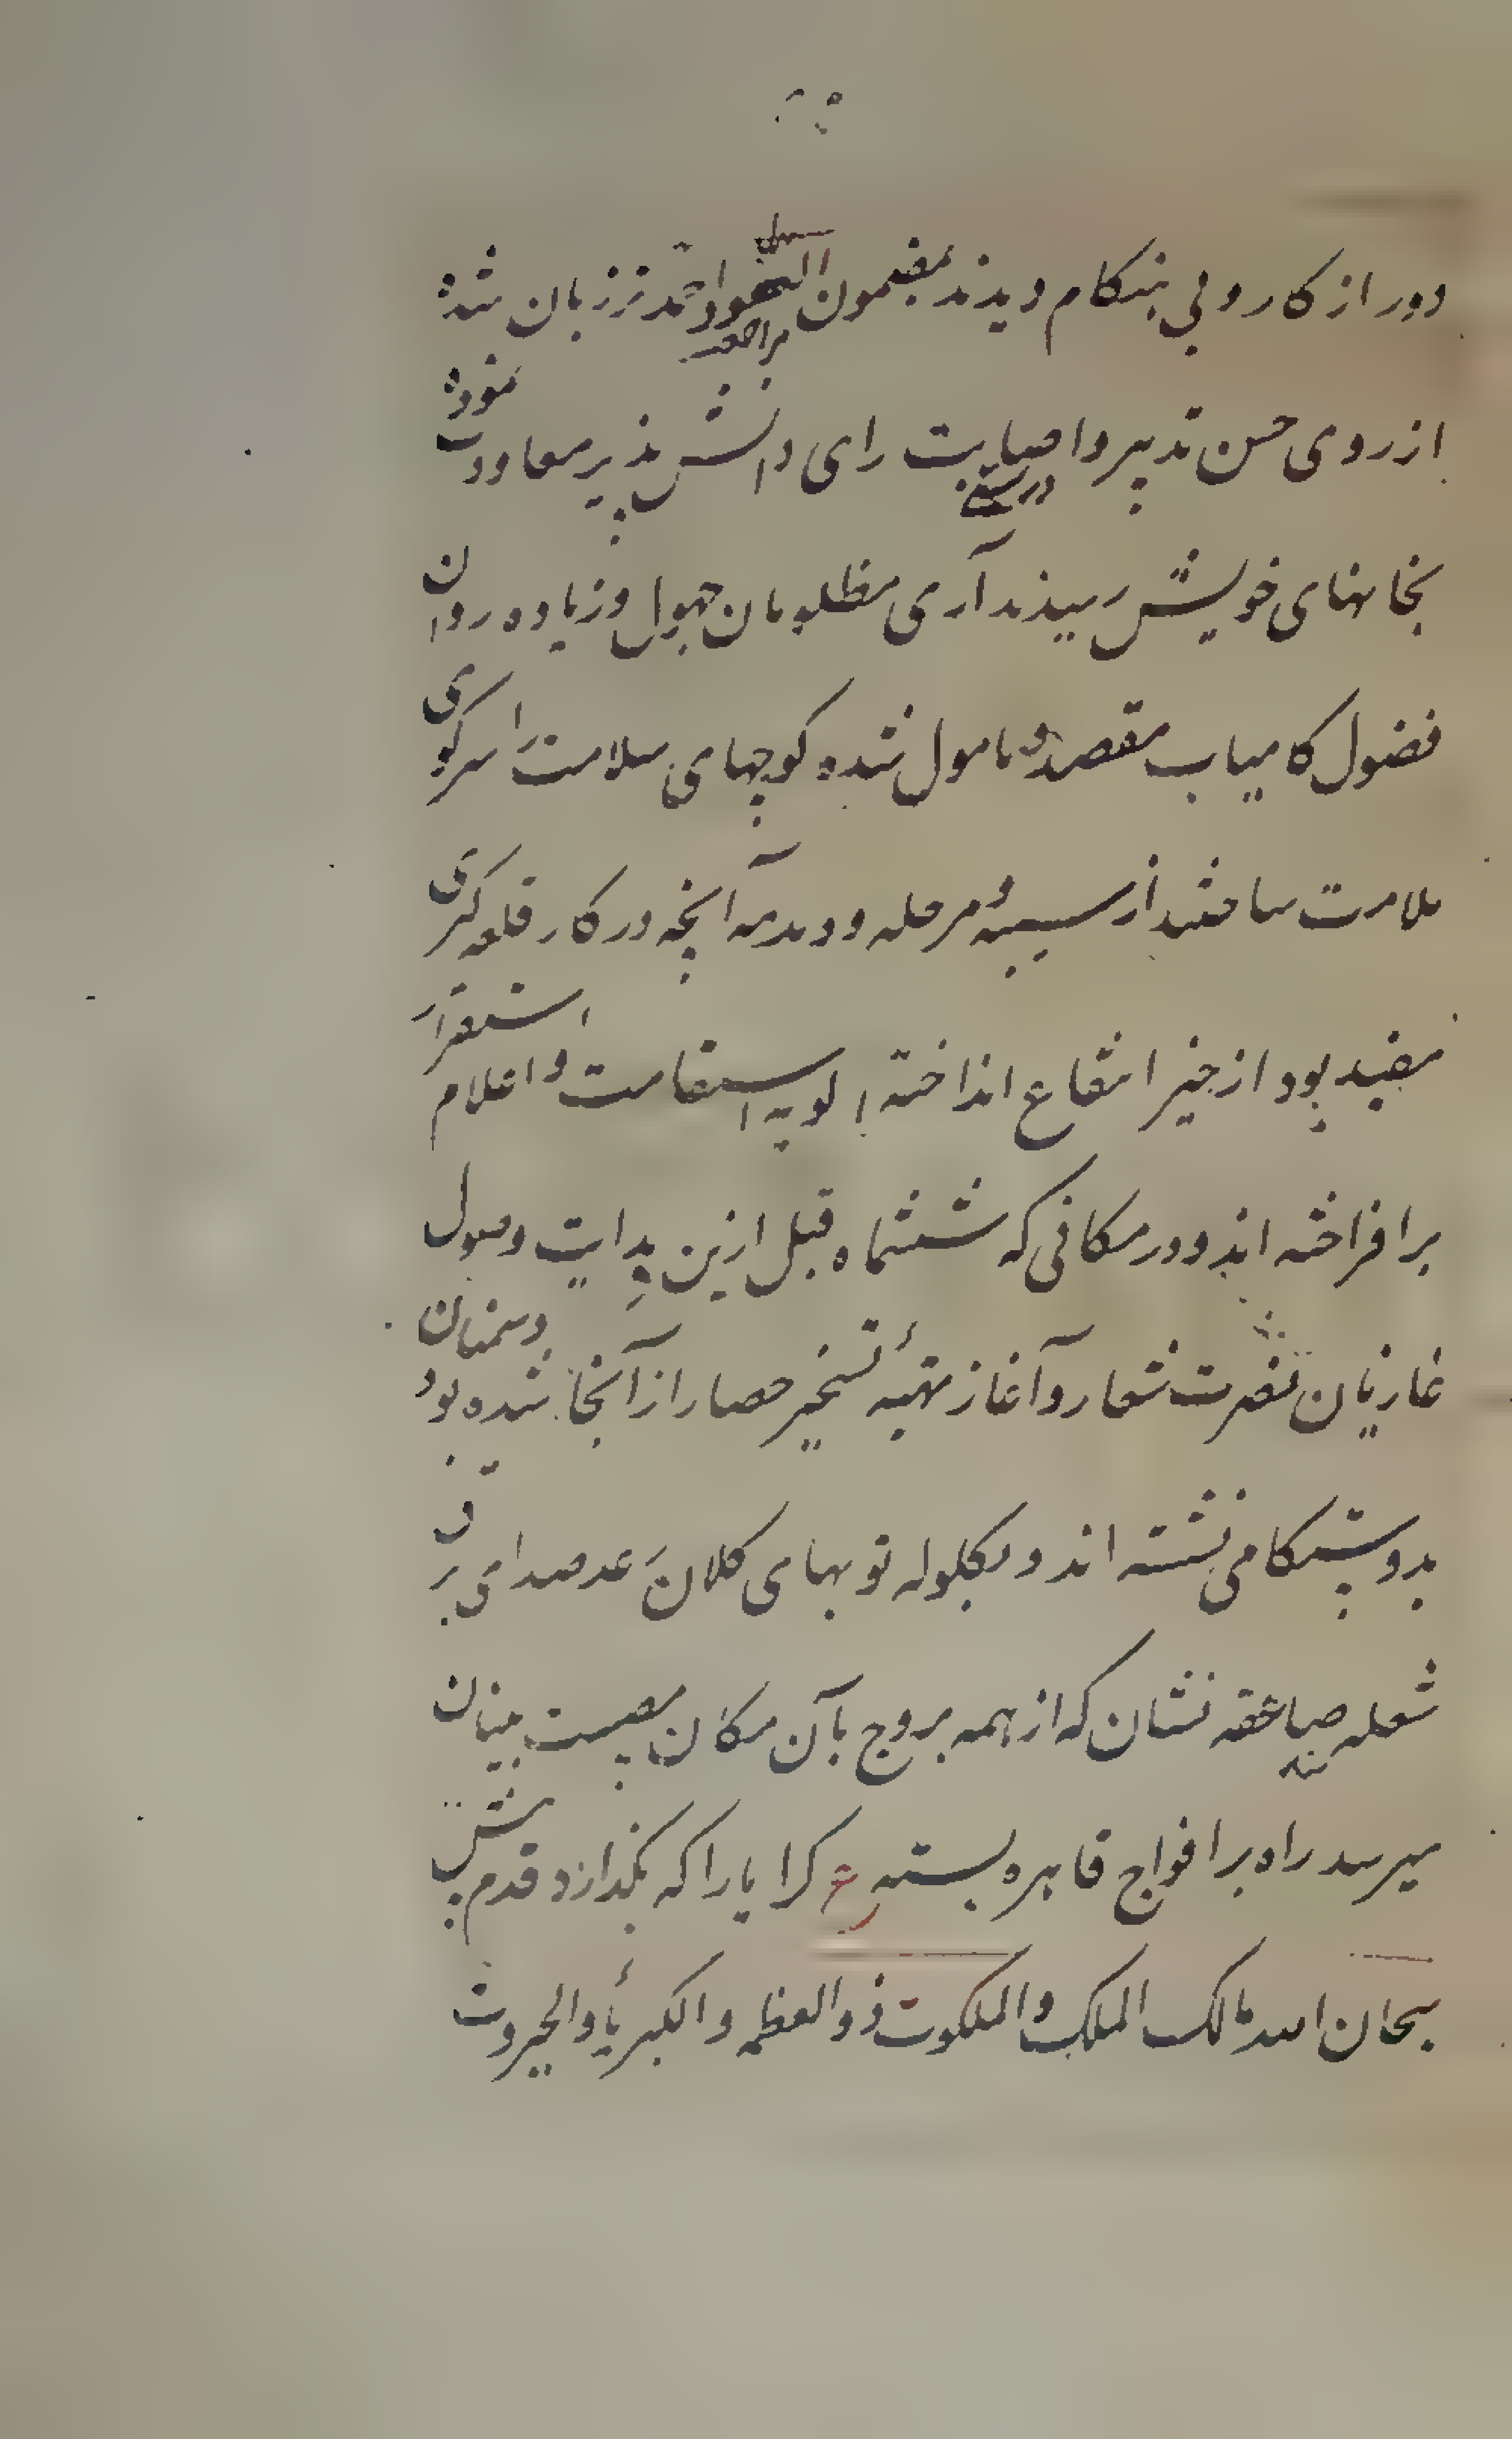 دور از کار و بی هنکام دیدند بمضمون العود احمد تر زبان شده
از روی حسن تدبیر و اصابت رای دانش پذیر معاودت نموده
بخانهای خویش رسیدند آری مظلومان جهول و زیاده روان
فضول کامیاب مقصد و مامول نشده کوچهای سلامت را سر کوی
ملامت ساختند از سیبه و مرحله و دمدمه آنچه در کار قلعه کیری
مفید بود از حیز انتفاع انداخته الویه استقامت و اعلام استقرار
برافراخته اند و در مکانی که ششماه قبل ازین بدایت وصول
غازیان نصرت شعار و آغاز تهیه تسخیر حصار از آنجا شده بود دشمنان
بدوستکامی نشسته اند و بکلوله توپهای کلان رعد صدای برق
شعله صاعقه نشان که از همه بروج بآن مکان مصیبت بنیان
میرسد راه بر افواج قاهره بسته ع کرا یارا که بگذارد قدم پیش
سبحان الله مالک الملک و الملکوت ذو العظمه و الکبریاء و الجبروت